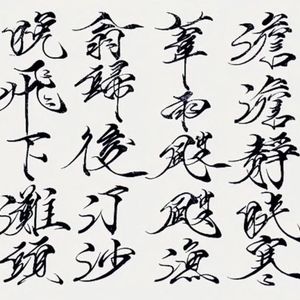 澹澹靜映寒
葦雨颼颼漁
翁歸後汀沙
晚飛下灘頭